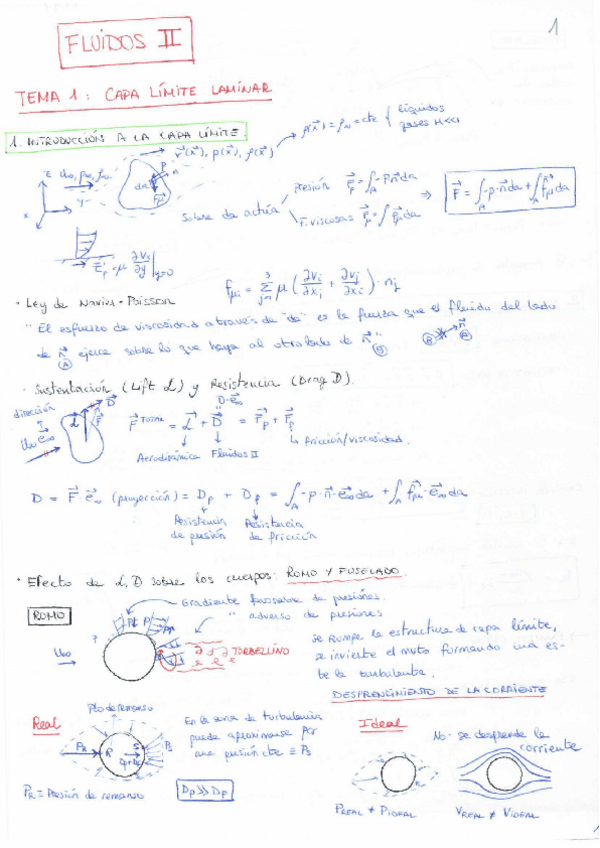 1
FLUIDOS II
TEMA 1: CAPA LÍMITE LAMINAR
1. INTRODUCCIÓN A LA CAPA LÍMITE
ρ(x⃗) = ρ∞ = cte { líquidos
gases M<<1
v⃗(x⃗), p(x⃗), ρ(x⃗)
U∞, p∞, ρ∞
z
y
x
Sobre da actúa
Presión F⃗p = ∫A -p·n⃗ da
F. viscosas F⃗μ = ∫ f⃗μ da
⇒ F⃗ = ∫A -p·n⃗ da + ∫A f⃗μ da
μ ∂Vx/∂y |y=0
fμi = Σ μ (∂Vi/∂xj + ∂Vj/∂xi) · nj
· Ley de Navier-Poisson
"El esfuerzo de viscosidad a través de "da" es la fuerza que el fluido del lado
de n⃗ ejerce sobre lo que haya al otro lado de n⃗"
(A) (B)
· Sustentación (Lift L) y Resistencia (Drag D).
dirección
U∞ e⃗∞
D·e⃗∞
F⃗ TOTAL = L⃗ + D⃗ = F⃗p + F⃗μ
↳ fricción/viscosidad.
Aerodinámica Fluidos II
D = F⃗·e⃗∞ (proyección) = Dp + Dμ = ∫A -p·n⃗·e⃗∞ da + ∫A f⃗μ·e⃗∞ da
Resistencia Resistencia
de presión de fricción
· Efecto de L, D sobre los cuerpos: ROMO Y FUSELADO.
Gradiente favorable de presiones.
" adverso de presiones
ROMO
U∞
TORBELLINO
se rompe la estructura de capa límite,
se invierte el mvto formando una es-
tela turbulenta.
DESPRENDIMIENTO DE LA CORRIENTE
Pto de remanso
Real
PR
PR = Presión de remanso
En la zona de turbulencia
puede aproximarse por
una presión cte ≡ PS
Dp >> Dμ
Ideal
No se desprende la
corriente
PREAL ≠ PIDEAL
VREAL ≠ VIDEAL
1